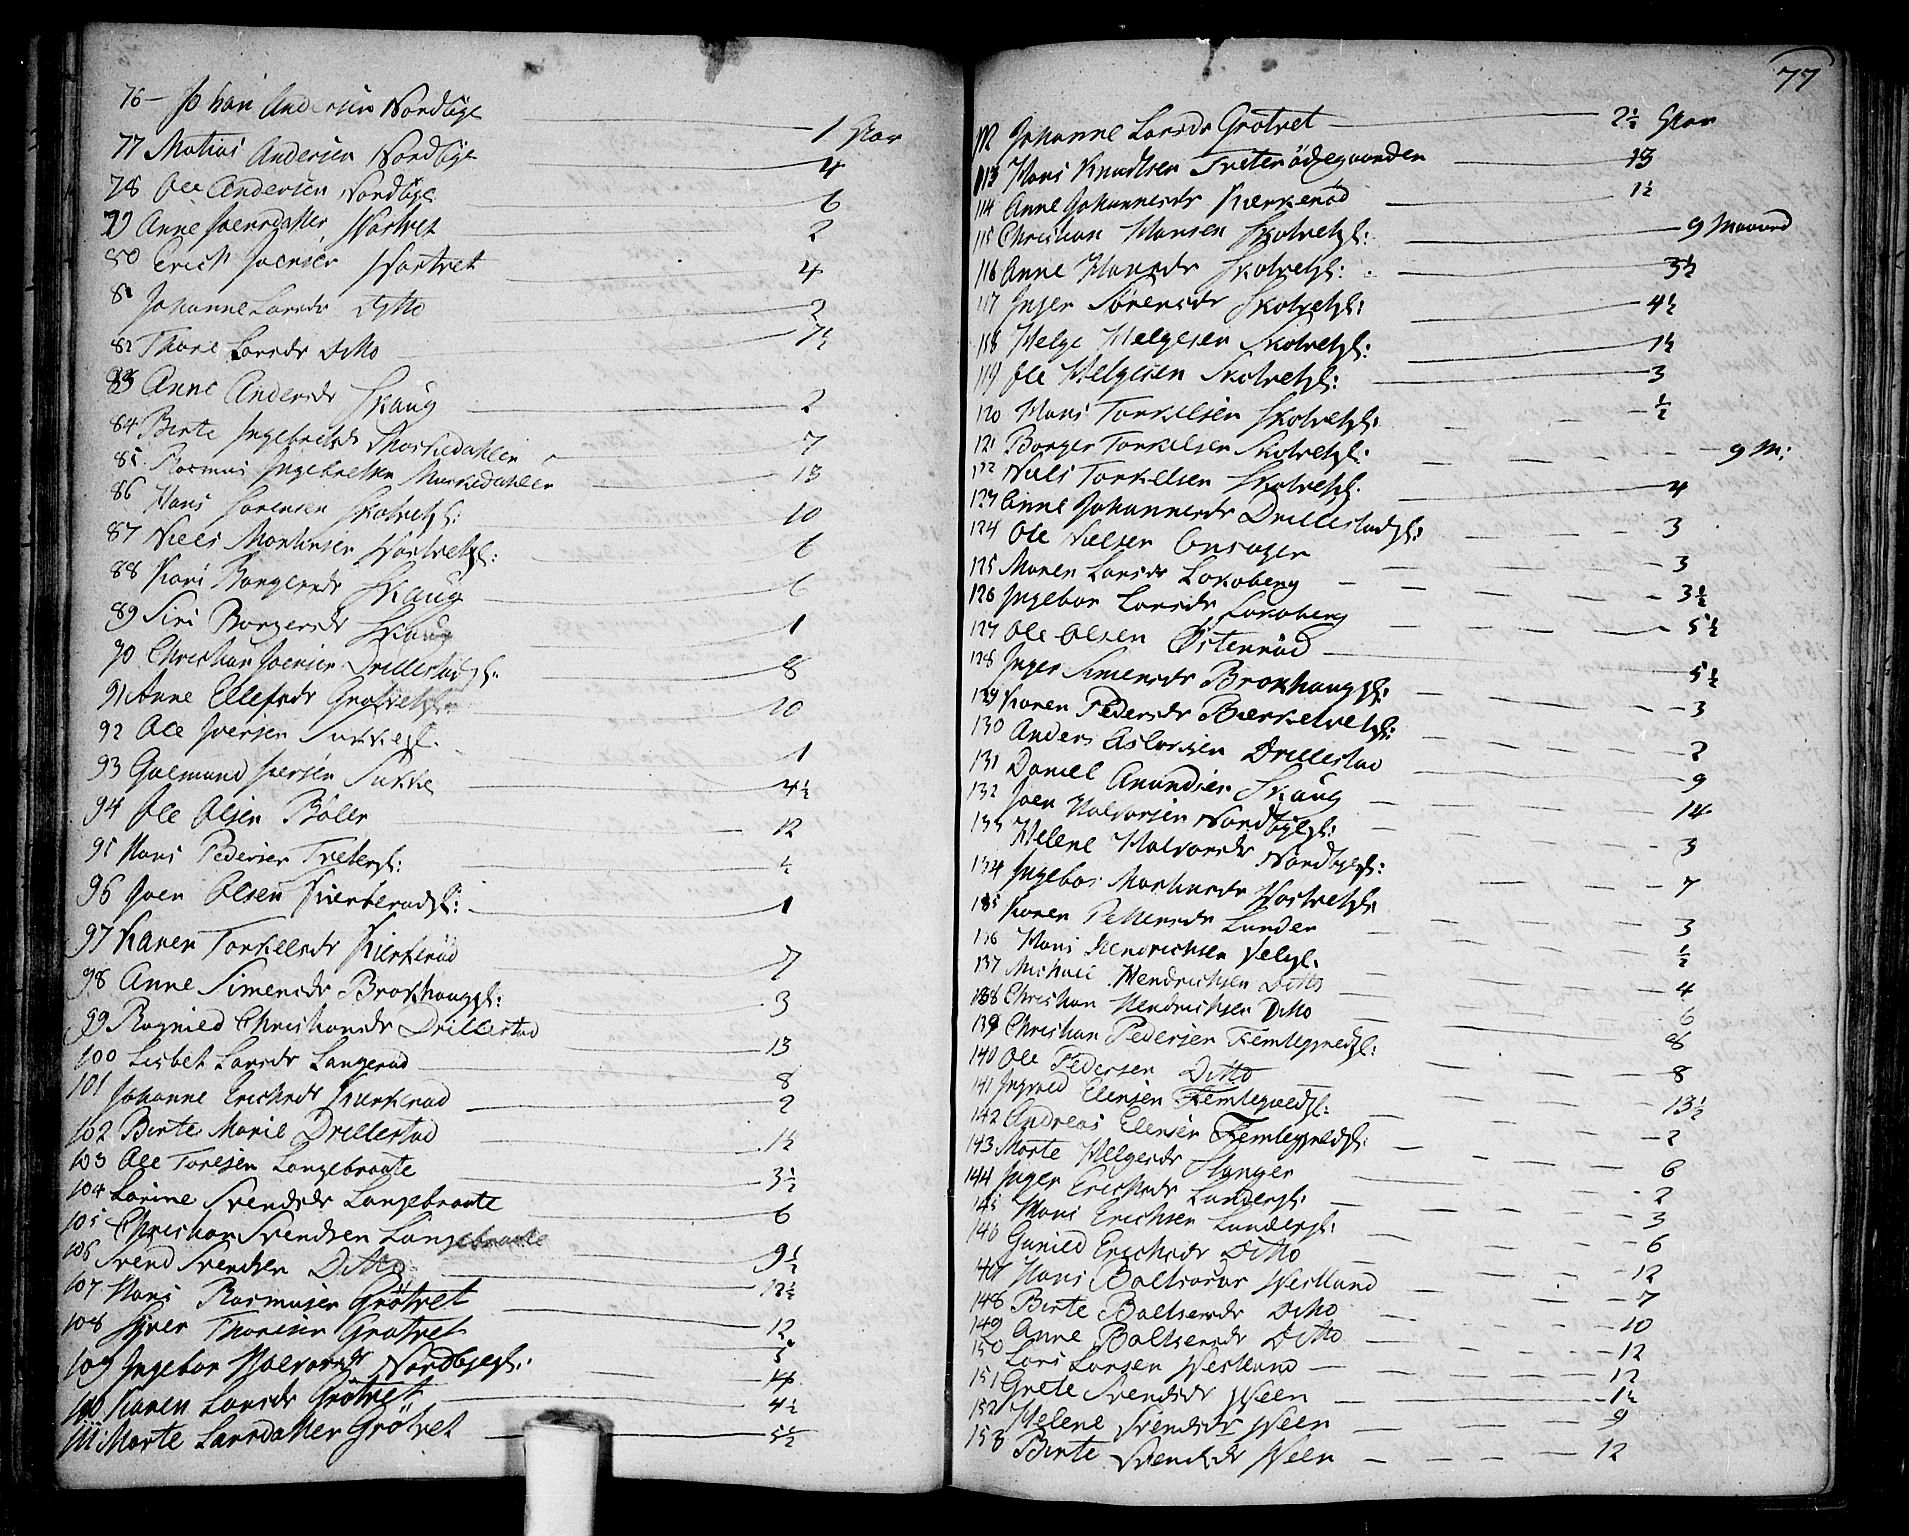 76 – Johan Andersen Nordbÿe — 1 Aar
77 Matias Andersen Nordbÿe — 4
78 Ole Andersen Nordbÿe — 6
79 Anne Joensdatter Hortvet — 2
80 Erich Joensen Hortvet — 4
81 Johanne Larsdr Ditto — 2
82 Thore Larsdr Ditto — 7½
83 Anne Andersdr Skaug — 2
84 Birte Ingebretsdr Morkedahlen — 7
85 Rasmus Ingebretsen Morkedahlen — 13
86 Hans Sørensen Skotvetgl: — 10
87 Niels Mortensen Hortvetgl: — 6
88 Kari Borgersdr Skaug — 6
89 Siri Borgersdr Skaug — 1
90 Christian Joensen Drillestadgl: — 8
91 Anne Ellefsdr Grotvetgl: — 10
92 Ole Iversen Sukkegl. — 1
93 Gulmund Iversen Sukke — 4½
94 Ole Olsen Bøler — 12
95 Hans Pedersen Tvetergl: — ½
96 Joen Olsen Kierkerødgl: — 1
97 Karen Torkelsdr Kierkerød — 7
98 Anne Simensdr Brokhauggl: — 3
99 Ragnild Christiansdr Drillestad — 13
100 Lisbet Larsdr Langerød — 8
101 Johanne Erichsdr Kierkerød — 2
102 Birte Marie Drillestad — 1½
103 Ole Toresen Langebraate — 3½
104 Larine Svendsdr Langebraate — 6
105 Christian Svendsen Langebraate — 9½
106 Svend Svendsen Ditto — 12½
107 Hans Rasmusen Grøtvet — 12
108 Syver Thoresen Grøtvet — 5
109 Ingebor Halvorsdr Nordbyegl: — 4
110 Karen Larsdr Grøtvet — 4½
111 Marte Larsdatter Grøtvet — 5½
77
112 Johanne Larsdr Grøtvet — 2½ Aar
113 Hans Knudtsen Tveter ødegaarden — 13
114 Anne Johannesdr Kierkerød — 1½
115 Christian Hansen Skotvetgl: — 9 Maaned
116 Anne Hansdr Skotvetgl: — 3½
117 Inger Sørensdr Skotvetgl: — 4½
118 Helge Helgesen Skotvetgl: — 1½
119 Ole Helgesen Skotvetgl: — 3
120 Hans Torkelsen Skotvetgl: — ½
121 Borger Torkelsen Skotvetgl: — 9 M:
122 Niels Torkelsen Skotvetgl. — 4
123 Anne Johannesdr Drillestadgl: — 3
124 Ole Nielsen Onsager — 3
125 Maren Larsdr Lokoberg — 3½
126 Ingebor Larsdr Lokoberg — 5½
127 Ole Olsen Østenrød — 5½
128 Inger Simensdr Brokhauggl: — 3
129 Karen Pedersdr Bierketvetgl: — 2
130 Anders Aslorsen Drillestad — 9
131 Daniel Amundsen Skaug — 14
132 Joen Halvorsen Nordbyegl: — 3
133 Helene Halvorsdr Nordbyegl: — 7
134 Ingebor Mortensdr Hortvetgl: — 3
135 Karen Pettersdr Lunder — ½
136 Hans Hendrichsen Velgl. — 4
137 Michael Hendrichsen Ditto — 6
138 Christian Hendrichsen Ditto — 8
139 Christian Pedersen Femtegieldgl: — 8
140 Ole Pedersen Ditto — 13½
141 Ingvald Elensen Femtegieldgl: — 2
142 Andreas Elensen Femtegieldgl: — 6
143 Morte Helgesdr Slanger — 2
144 Inger Erichsdr Lundergl: — 3
145 Hans Erichsen Lundergl: — 6
146 Gunild Erichsdr Ditto — 12
147 Hans Baltsersen Westlund — 7
148 Birte Baltsersdr Ditto — 10
149 Anne Baltsersdr Ditto — 12
150 Lars Larsen Westlund — 12
151 Grete Svendsdr Ween — 1½
152 Helene Svendsdr Ween — 9
153 Birte Svendsdr Ween — 12